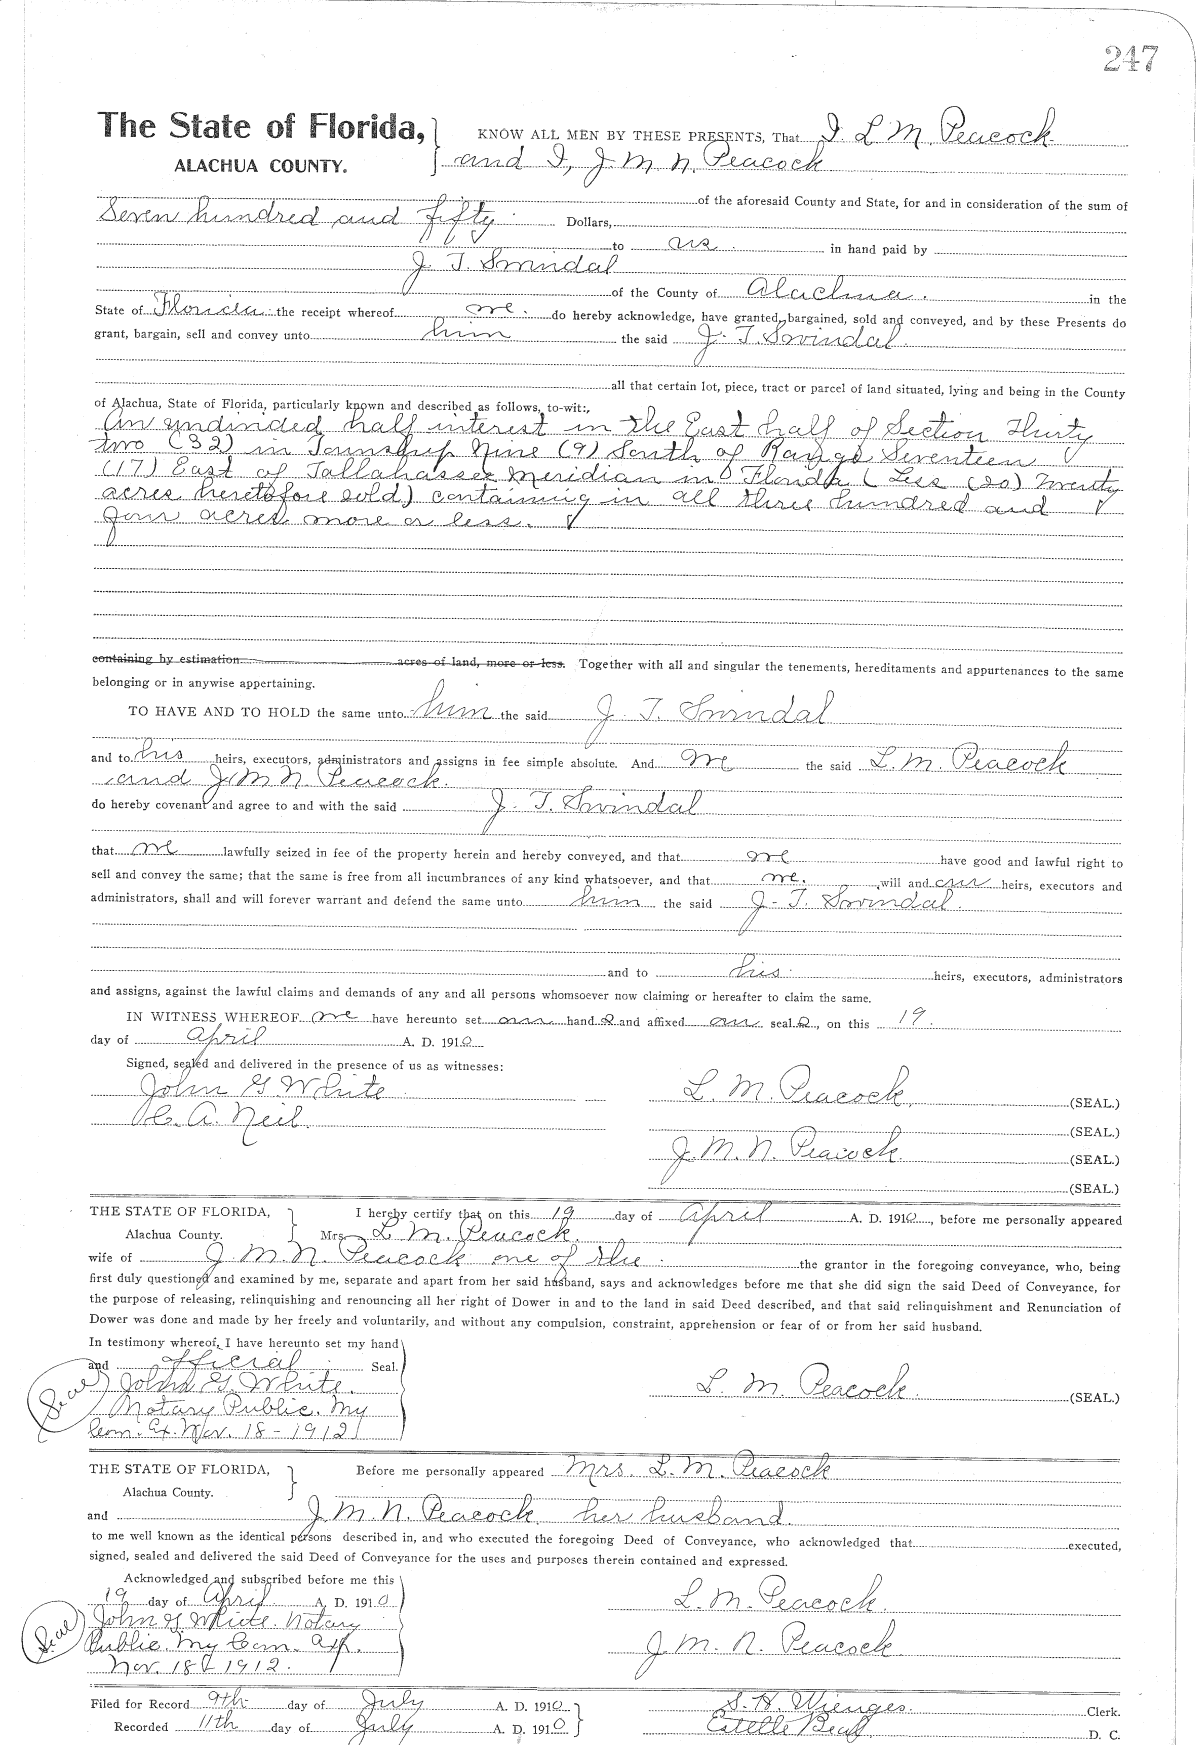 247
The State of Florida, KNOW ALL MEN BY THESE PRESENTS, That I. L. M. Peacock
ALACHUA COUNTY. and I, J. M. N. Peacock
of the aforesaid County and State, for and in consideration of the sum of
Seven hundred and fifty Dollars,
to us in hand paid by
J. T. Swindal
of the County of Alachua. in the
State of Florida the receipt whereof we. do hereby acknowledge, have granted, bargained, sold and conveyed, and by these Presents do
grant, bargain, sell and convey unto him the said J. T. Swindal.
all that certain lot, piece, tract or parcel of land situated, lying and being in the County
of Alachua, State of Florida, particularly known and described as follows, to-wit:,
An undivided half interest in the East half of Section Thirty
two (32) in Township Nine (9) South of Range Seventeen
(17) East of Tallahassee Meridian in Florida (Less (20) Twenty
acres heretofore sold) containing in all three hundred and
four acres more or less.
containing by estimation acres of land, more or less. Together with all and singular the tenements, hereditaments and appurtenances to the same
belonging or in anywise appertaining.
TO HAVE AND TO HOLD the same unto him the said J. T. Swindal
and to his heirs, executors, administrators and assigns in fee simple absolute. And we the said L. M. Peacock
and J. M. N. Peacock.
do hereby covenant and agree to and with the said J. T. Swindal
that we lawfully seized in fee of the property herein and hereby conveyed, and that we have good and lawful right to
sell and convey the same; that the same is free from all incumbrances of any kind whatsoever, and that we. will and our heirs, executors and
administrators, shall and will forever warrant and defend the same unto him the said J. T. Swindal.
and to his heirs, executors, administrators
and assigns, against the lawful claims and demands of any and all persons whomsoever now claiming or hereafter to claim the same.
IN WITNESS WHEREOF we have hereunto set our hands and affixed our seals, on this 19.
day of April A. D. 1910
Signed, sealed and delivered in the presence of us as witnesses:
John G. White L. M. Peacock. (SEAL.)
C. A. Neil. (SEAL.)
J. M. N. Peacock. (SEAL.)
(SEAL.)
THE STATE OF FLORIDA, I hereby certify that on this 19 day of April A. D. 1910, before me personally appeared
Alachua County. Mrs. L. M. Peacock.
wife of J. M. N. Peacock one of the the grantor in the foregoing conveyance, who, being
first duly questioned and examined by me, separate and apart from her said husband, says and acknowledges before me that she did sign the said Deed of Conveyance, for
the purpose of releasing, relinquishing and renouncing all her right of Dower in and to the land in said Deed described, and that said relinquishment and Renunciation of
Dower was done and made by her freely and voluntarily, and without any compulsion, constraint, apprehension or fear of or from her said husband.
In testimony whereof, I have hereunto set my hand
and official Seal.
Seal John G. White. L. M. Peacock. (SEAL.)
Notary Public. My
Com. Ex. Nov. 18-1912
THE STATE OF FLORIDA, Before me personally appeared Mrs. L. M. Peacock
Alachua County.
and J. M. N. Peacock her husband.
to me well known as the identical persons described in, and who executed the foregoing Deed of Conveyance, who acknowledged that executed,
signed, sealed and delivered the said Deed of Conveyance for the uses and purposes therein contained and expressed.
Acknowledged and subscribed before me this
19 day of April A. D. 1910 L. M. Peacock.
Seal John G. White. Notary
Public. My Com. Exp. J. M. N. Peacock.
Nov. 18 1912.
Filed for Record 9th day of July A. D. 1910 S. H. Wienges. Clerk.
Recorded 11th day of July A. D. 1910 Estelle D. C.